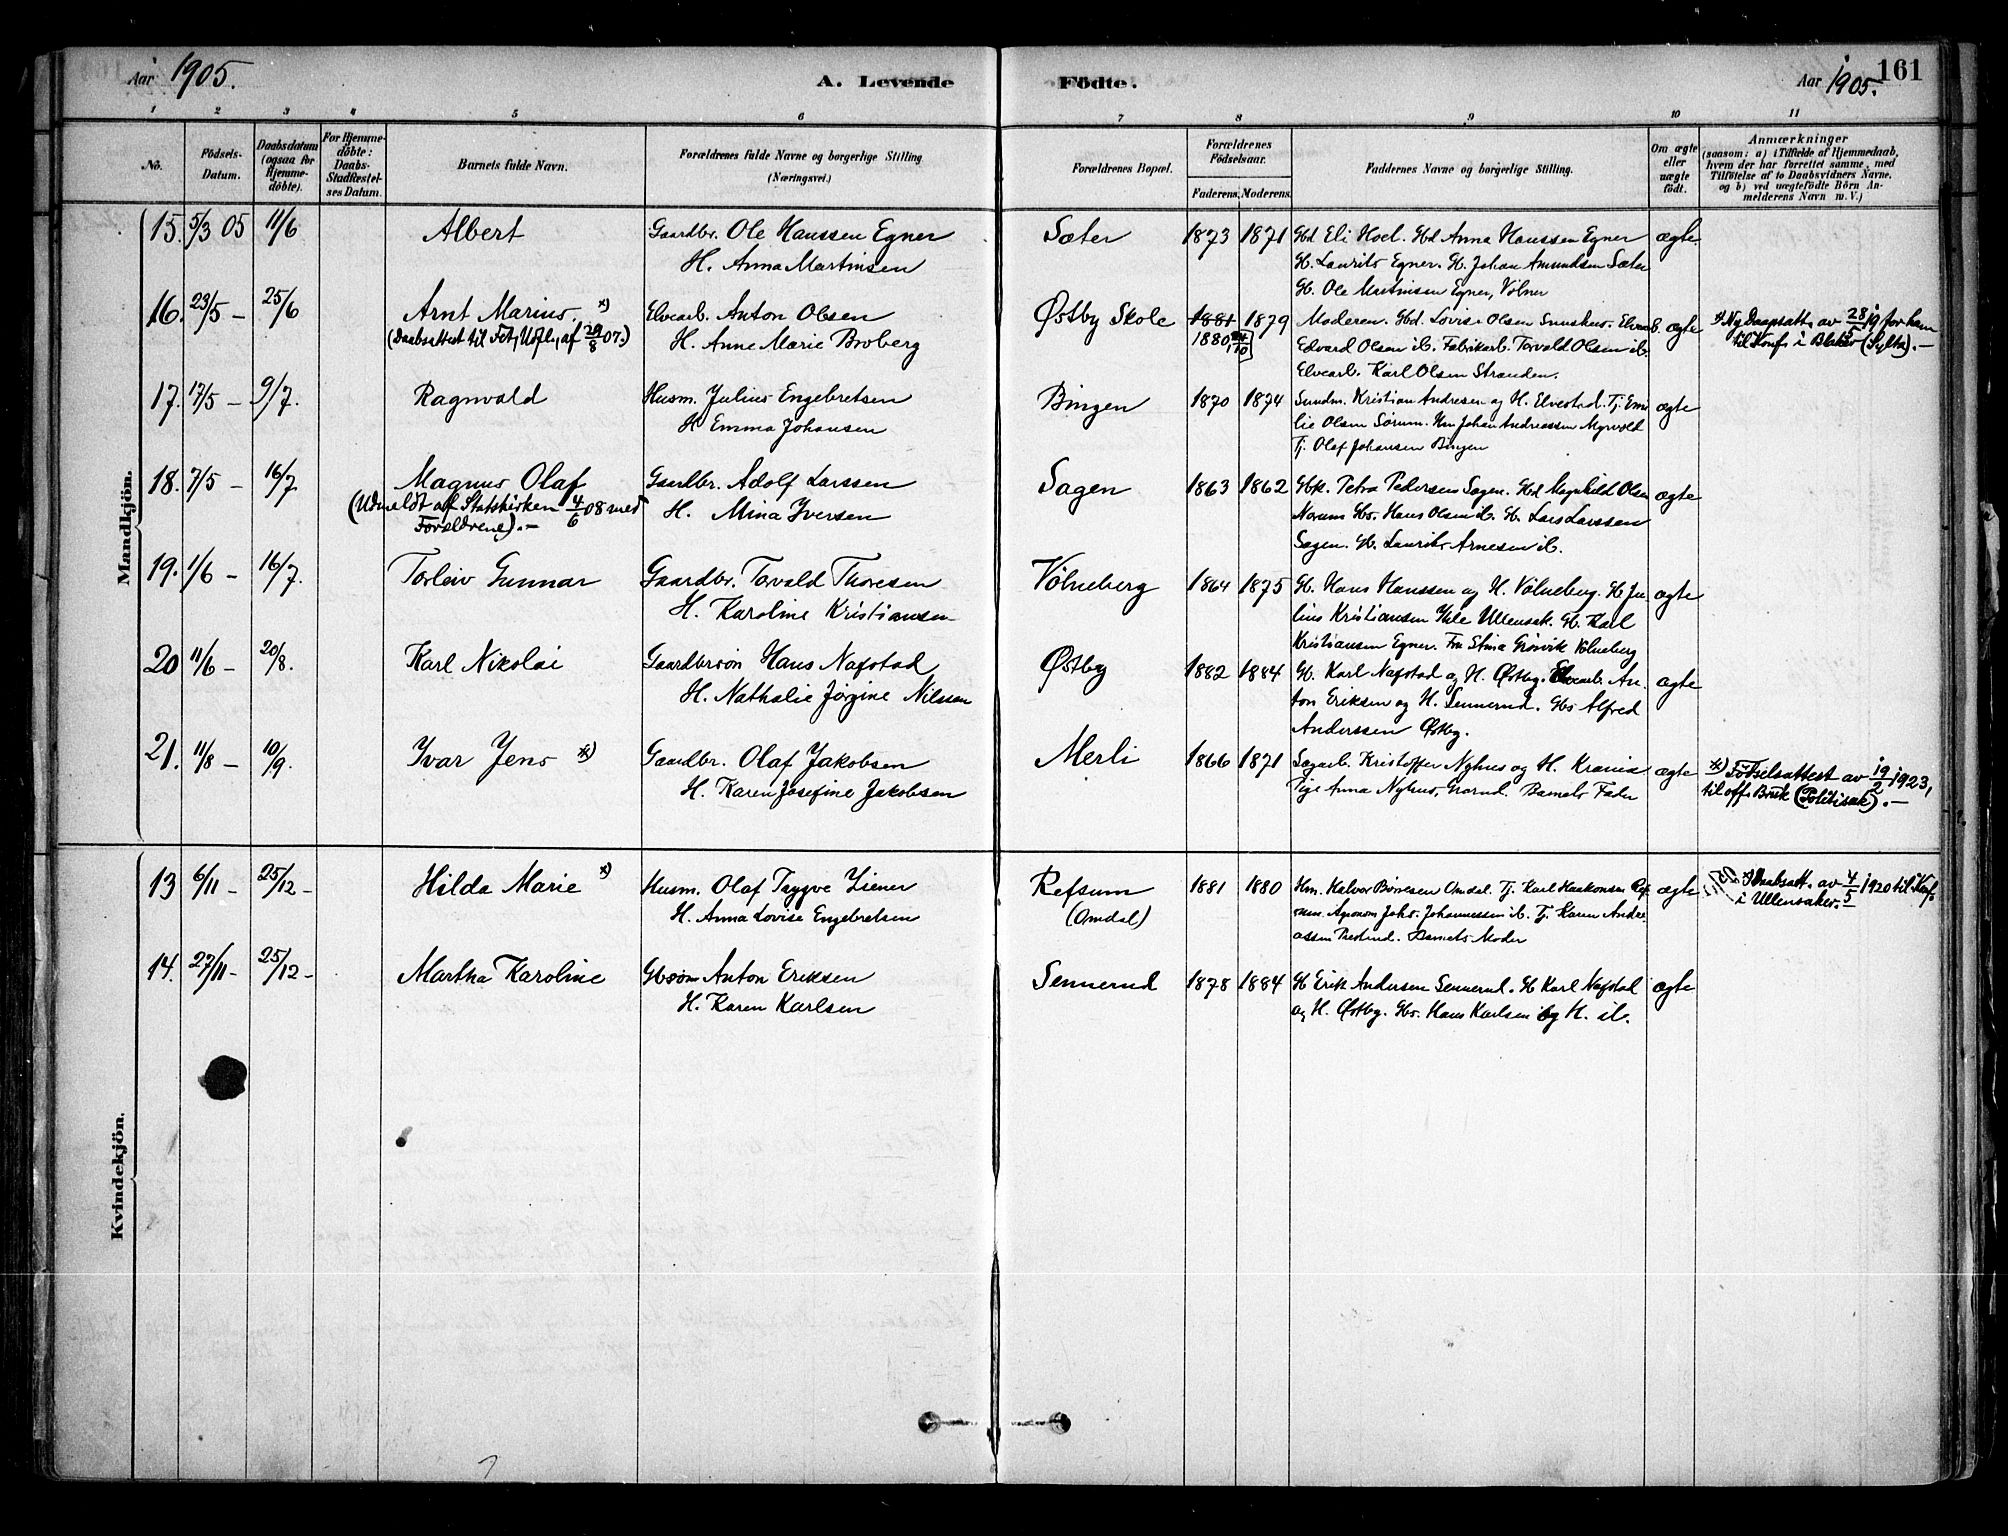 Aar 1905.
A. Levende
Födte.
Aar 1905.
161
1 2 3 4 5 6 7 8 9 10 11
No.
Födsels-Datum.
Daabsdatum (ogsaa for Hjemmedöbte).
For Hjemmedöbte: Daabs-Stadfæstelses Datum.
Barnets fulde Navn.
Forældrenes fulde Navne og borgerlige Stilling (Næringsvei.)
Forældrenes Bopæl.
Forældrenes Födselsaar.
Faderens. Moderens.
Faddernes Navne og borgerlige Stilling.
Om ægte eller uægte födt.
Anmærkninger
(saasom: a) i Tilfælde af Hjemmedaab, hvem der har forrettet samme, med Tilföielse af to Daabsvidners Navne, og b) ved uægtefödte Börn Anmelderens Navn m. V.)
Mandkjön.
15. 5/3 05 11/6 Albert Gaardbr. Ole Hanssen Egner Sæter 1873 1871 Gbd Eli Hoel. Gbd Anna Hanssen Egner ægte
H. Anna Martinsen G. Laurits Egner. G. Johan Amundsen Sæter
Gb. Ole Martinsen Egner, Vølner
16. 23/5 – 25/6 Arnt Marius. *) Elvearb. Anton Olsen Østby Skole 1881 1879 Moderen. Gbd. Lovise Olsen Elvearb. ægte *) Ny Daapsatt. av 28/5 19 for ham
(Daabsattest til Fet, af 29/8 07.) H. Anne Marie Broberg 1880, Edvard Olsen ib. Fabrikarb. Torvald Olsen ib. til Konf. i Blaker
Elvearb. Karl Olsen Stranden.
17. 17/5 – 9/7. Ragnvald Husm. Julius Engebretsen Bingen 1870 1874 Kristian Andresen og H. Elvestad. Tj. Emi- ægte
H Emma Johansen lie Olsen Sørum. Hm Johan Andreassen Myrvold
Tj. Olaf Johansen Bingen
18. 7/5 – 16/7 Magnus Olaf Gaardbr. Adolf Larssen Sagen 1863 1862 Gbk. Petra Pedersen Sagen. Gbd Magnhild Olsen ægte
(Udmeldt af Statskirken 4/6 08 med Forældrene). – H. Mina Iversen Norum Gbs. Hans Olsen ib. G. Lars Larssen
Sagen. G. Laurits Arnesen ib.
19. 1/6 – 16/7. Torleiv Gunnar Gaardbr. Torvald Thoresen Vølneberg 1864 1875 G. Hans Hanssen og H. Vølneberg. G Ju- ægte
H. Karoline Kristiansen lius Kristiansen Ullensak. G. Karl
Kristiansen Egner. Fru Stina Vølneberg
20 11/6 – 20/8. Karl Nikolai Gaardbrsøn Hans Nafstad Østby 1882 1884 G. Karl Nafstad og H. Østby. Elvearb. An- ægte
H. Nathalie Jørgine Nilssen ton Eriksen og H. Sennerud. Gbs Alfred
Anderssen Østby.
21. 11/8 – 10/9. Ivar Jens *) Gaardbr. Olaf Jakobsen Merli 1866 1871 Sagarb. Kristoffer Nyhus og H. Krania ægte *) Fødselsattest av 19/2 1923,
H. Karen Josefine Jakobsen Pige Anna Nyhus, Barnets Fader til off. Bruk (Politisak). –
Kvindekjön.
13 6/11 – 25/12 – Hilda Marie *) Husm. Olaf Trygve Ziener Refsum 1881 1880 Hm. Halvor Børresen Omdal. Tj. Karl Haakonsen Ref- ægte *) Daabsatt. av 4/5 1920 til Konf.
H. Anna Lovise Engebretsen (Omdal) sum. Agronom Johs. Johannessen ib. Tj. Karen Andre- i Ullensaker.
assen Barnets Moder
14. 27/11 – 25/12 – Martha Karoline Gbsøn Anton Eriksen Sennerud 1878 1884 G Erik Andersen Sennerud. G Karl Nafstad ægte
H. Karen Karlsen og H. Østby. Gbs. Hans Karlsen og H. ib.